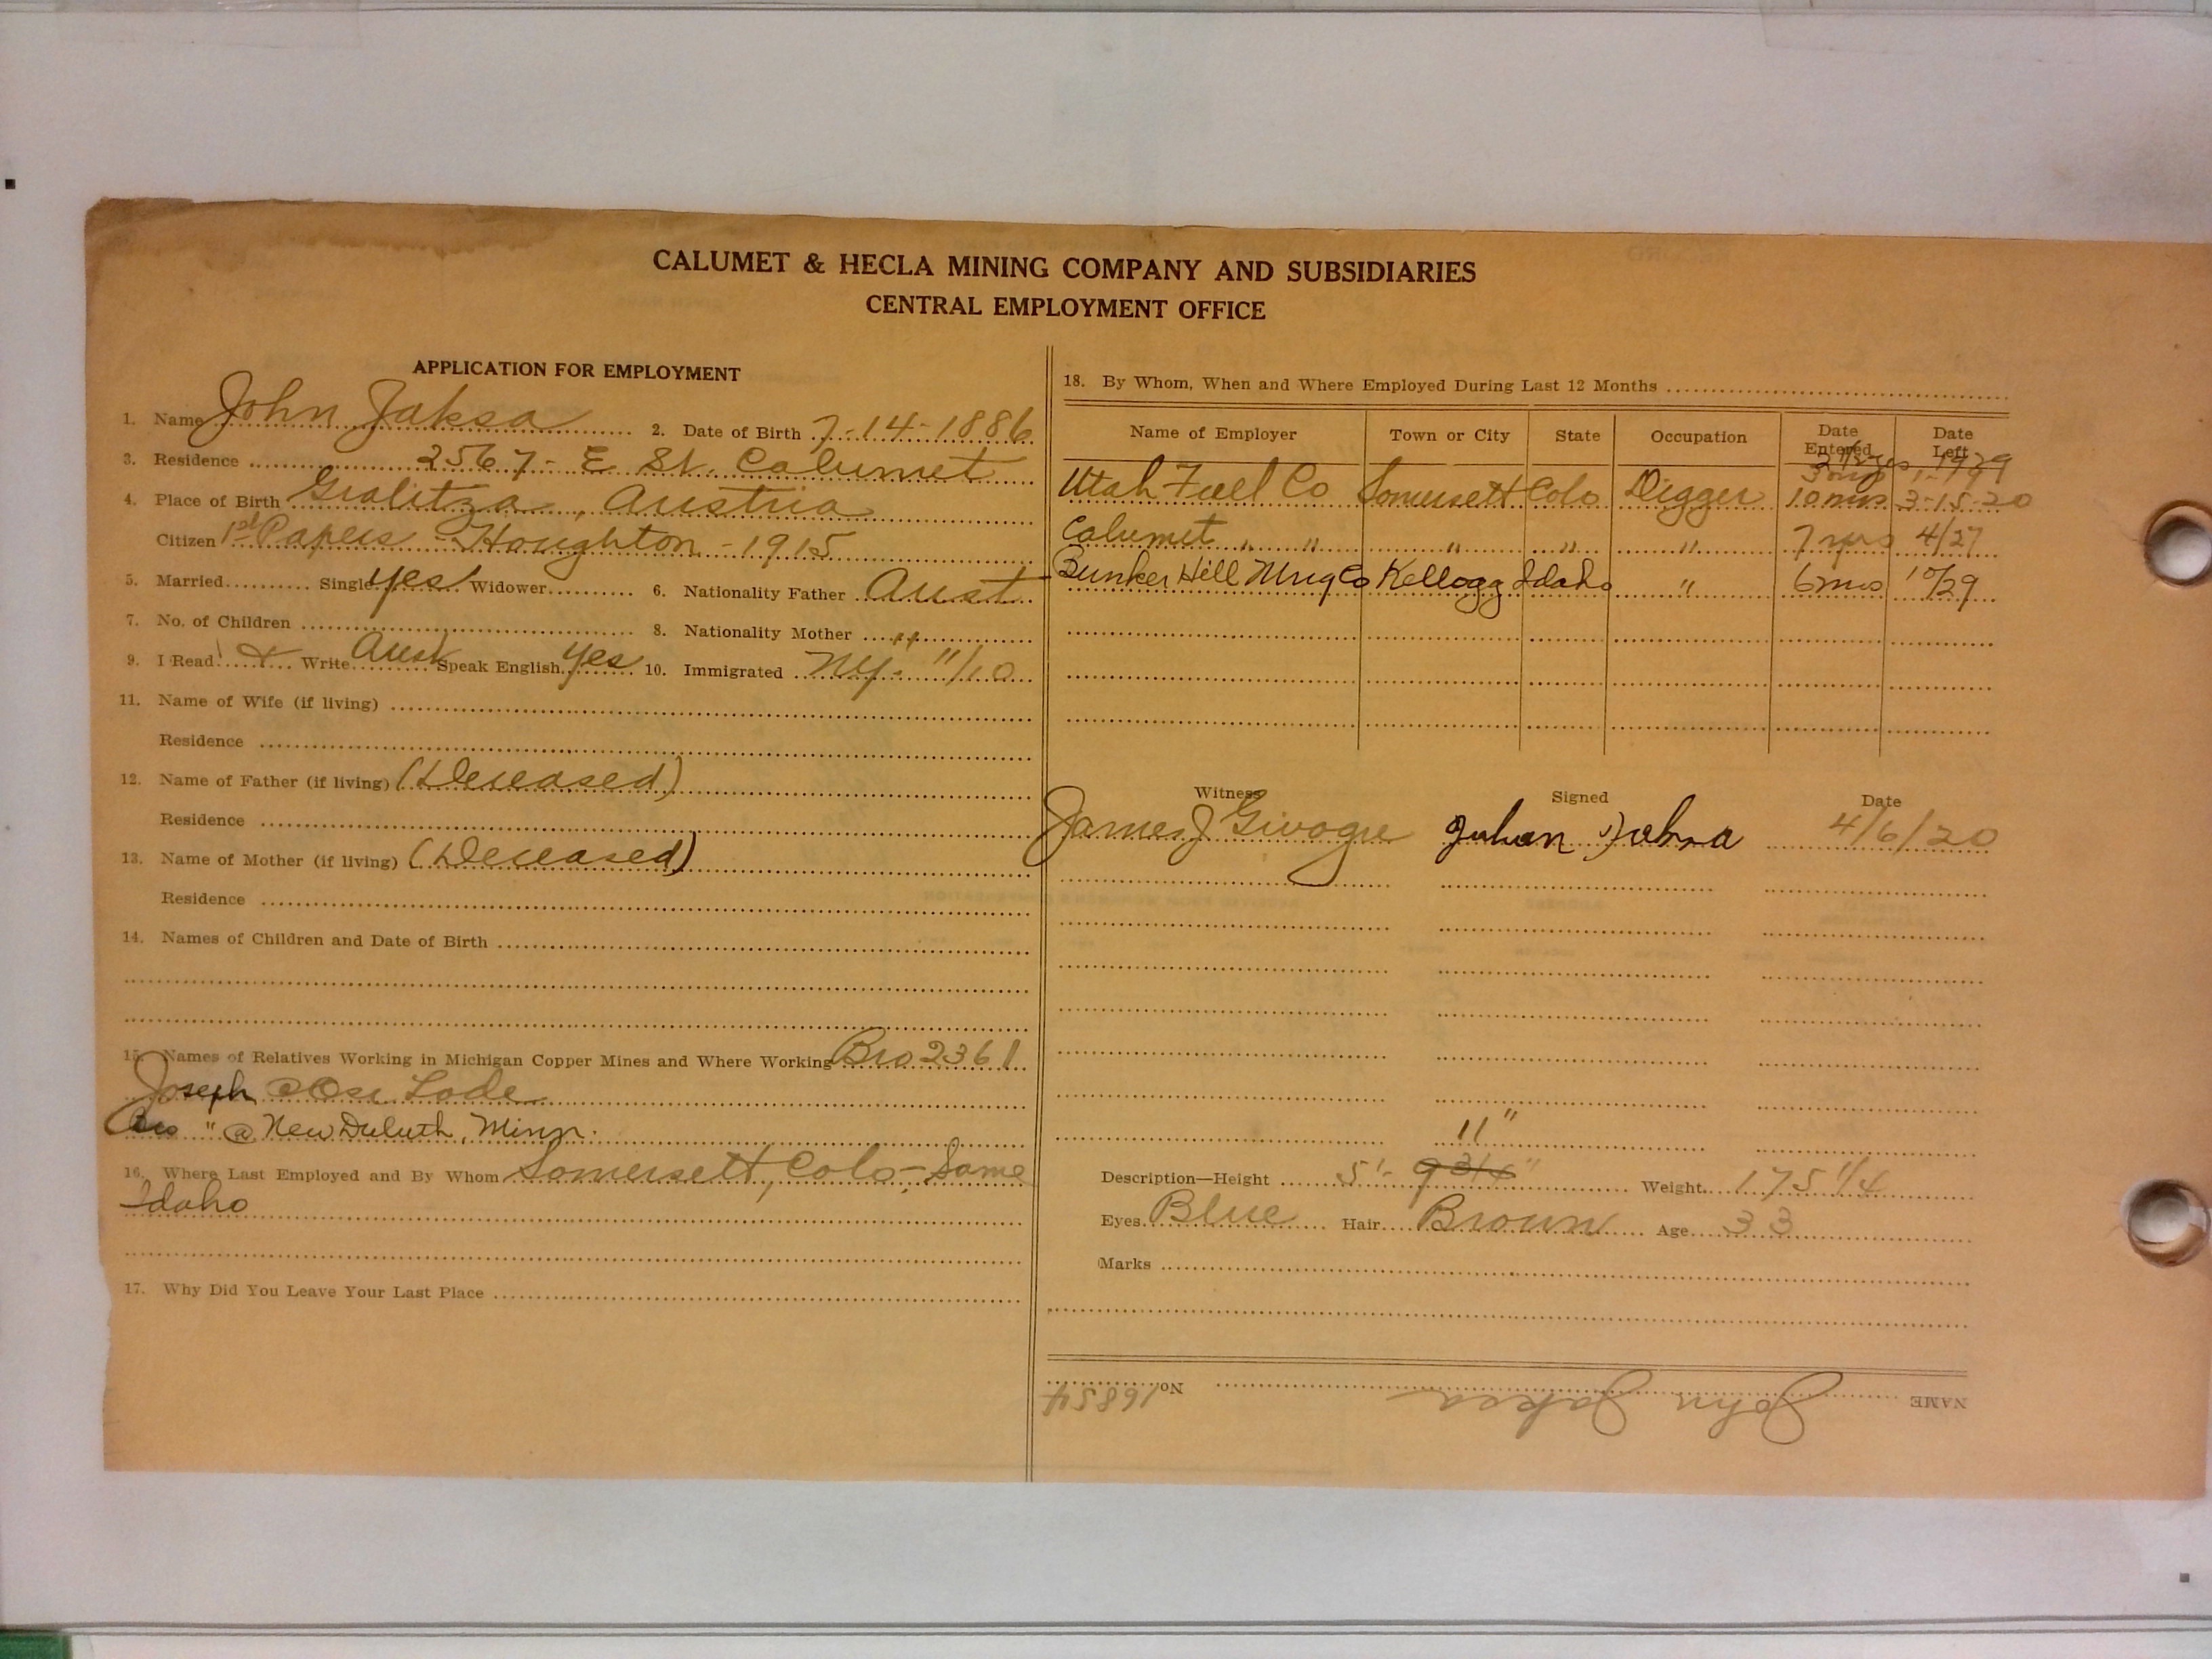 CALUMET & HECLA MINING COMPANY AND SUBSIDIARIES
CENTRAL EMPLOYMENT OFFICE
APPLICATION FOR EMPLOYMENT
1. Name John Jaksa 2. Date of Birth 7-14-1886
3. Residence 2567- E St. Calumet
4. Place of Birth Gralitza, Austria
Citizen 1st Papers Houghton - 1915
5. Married Single yes Widower 6. Nationality Father Aust
7. No. of Children 8. Nationality Mother "
9. I Read & Write Aust Speak English yes 10. Immigrated NY- 11/10
11. Name of Wife (if living)
Residence
12. Name of Father (if living) (Deceased)
Residence
13. Name of Mother (if living) (Deceased)
Residence
14. Names of Children and Date of Birth
15. Names of Relatives Working in Michigan Copper Mines and Where Working Bro 2361
Joseph @ Lode
Bro " @ New Duluth, Minn.
16. Where Last Employed and By Whom Somersett, Colo - Same
Idaho
17. Why Did You Leave Your Last Place
18. By Whom, When and Where Employed During Last 12 Months
Name of Employer Town or City State Occupation Date Entered Date Left
Utah Fuel Co Somersett Colo Digger 10 mos 3-15-20
Calumet " " " " " 7 yrs 4/27
Bunker Hill Mng Co Kellogg Idaho " 6 mos 10/29
Witness Signed Date
James J 4/6/20
11"
Description—Height 5'- 9 3/4" Weight 175 1/4
Eyes Blue Hair Brown Age 33
Marks
NAME John Jaksa No 16854